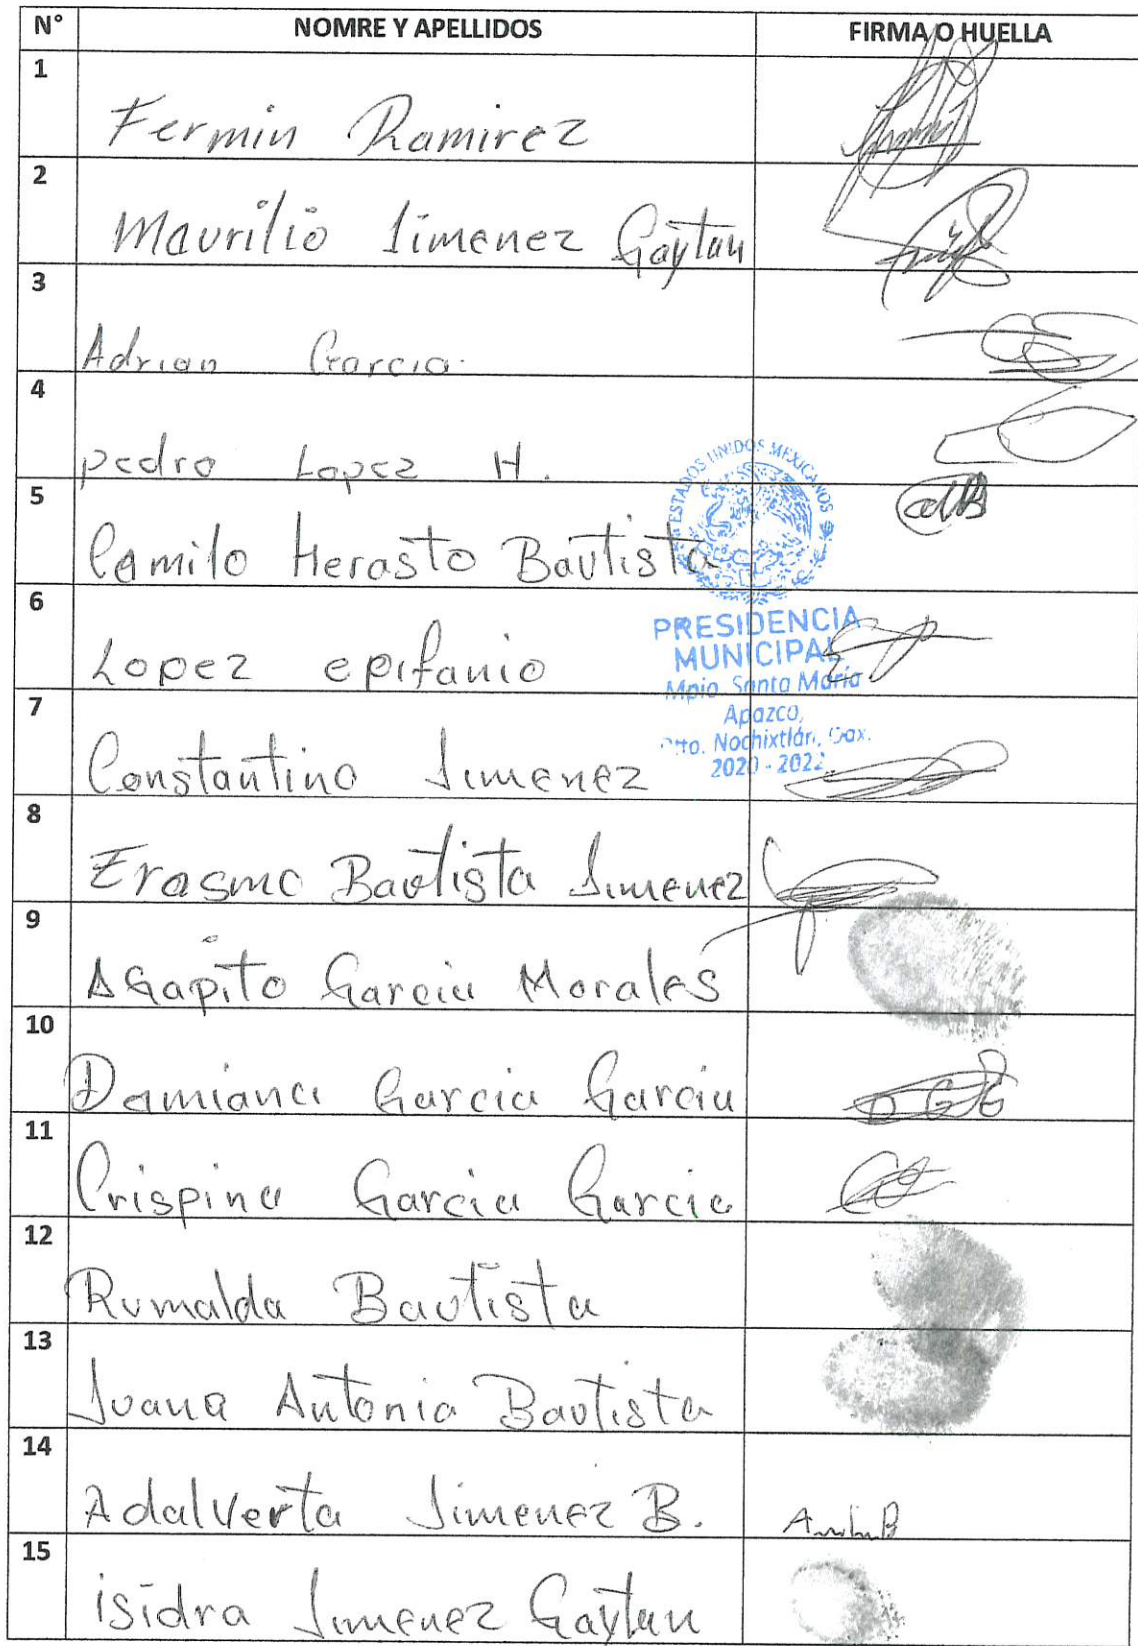 N° NOMBRE Y APELLIDOS FIRMA O HUELLA
1 Fermin Ramirez
2 Maurilio Jimenez Gaytan
3 Adrian Garcia.
4 pedro Lopez H.
5 Camilo Herasto Bautista
6 Lopez epifanio
7 Constantino Jimenez
8 Erasmo Bautista Jimenez
9 AGapito Garcia Morales
10 Damiana Garcia Garcia
11 Crispina Garcia Garcia
12 Rumalda Bautista
13 Juana Antonia Bautista
14 Adalverta Jimenez B.
15 isidra Jimenez Gaytan
ESTADOS UNIDOS MEXICANOS
PRESIDENCIA
MUNICIPAL
Mpio. Santa María
Apazco,
Dtto. Nochixtlán, Oax.
2020 - 2022